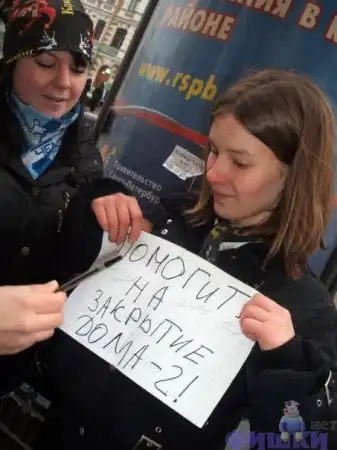 РАЙОНЕ
www.rspb
Правительство
Санкт-Петербурга
ПОМОГИТ
НА
ЗАКРЫТИЕ
ДОМА-2!
нет